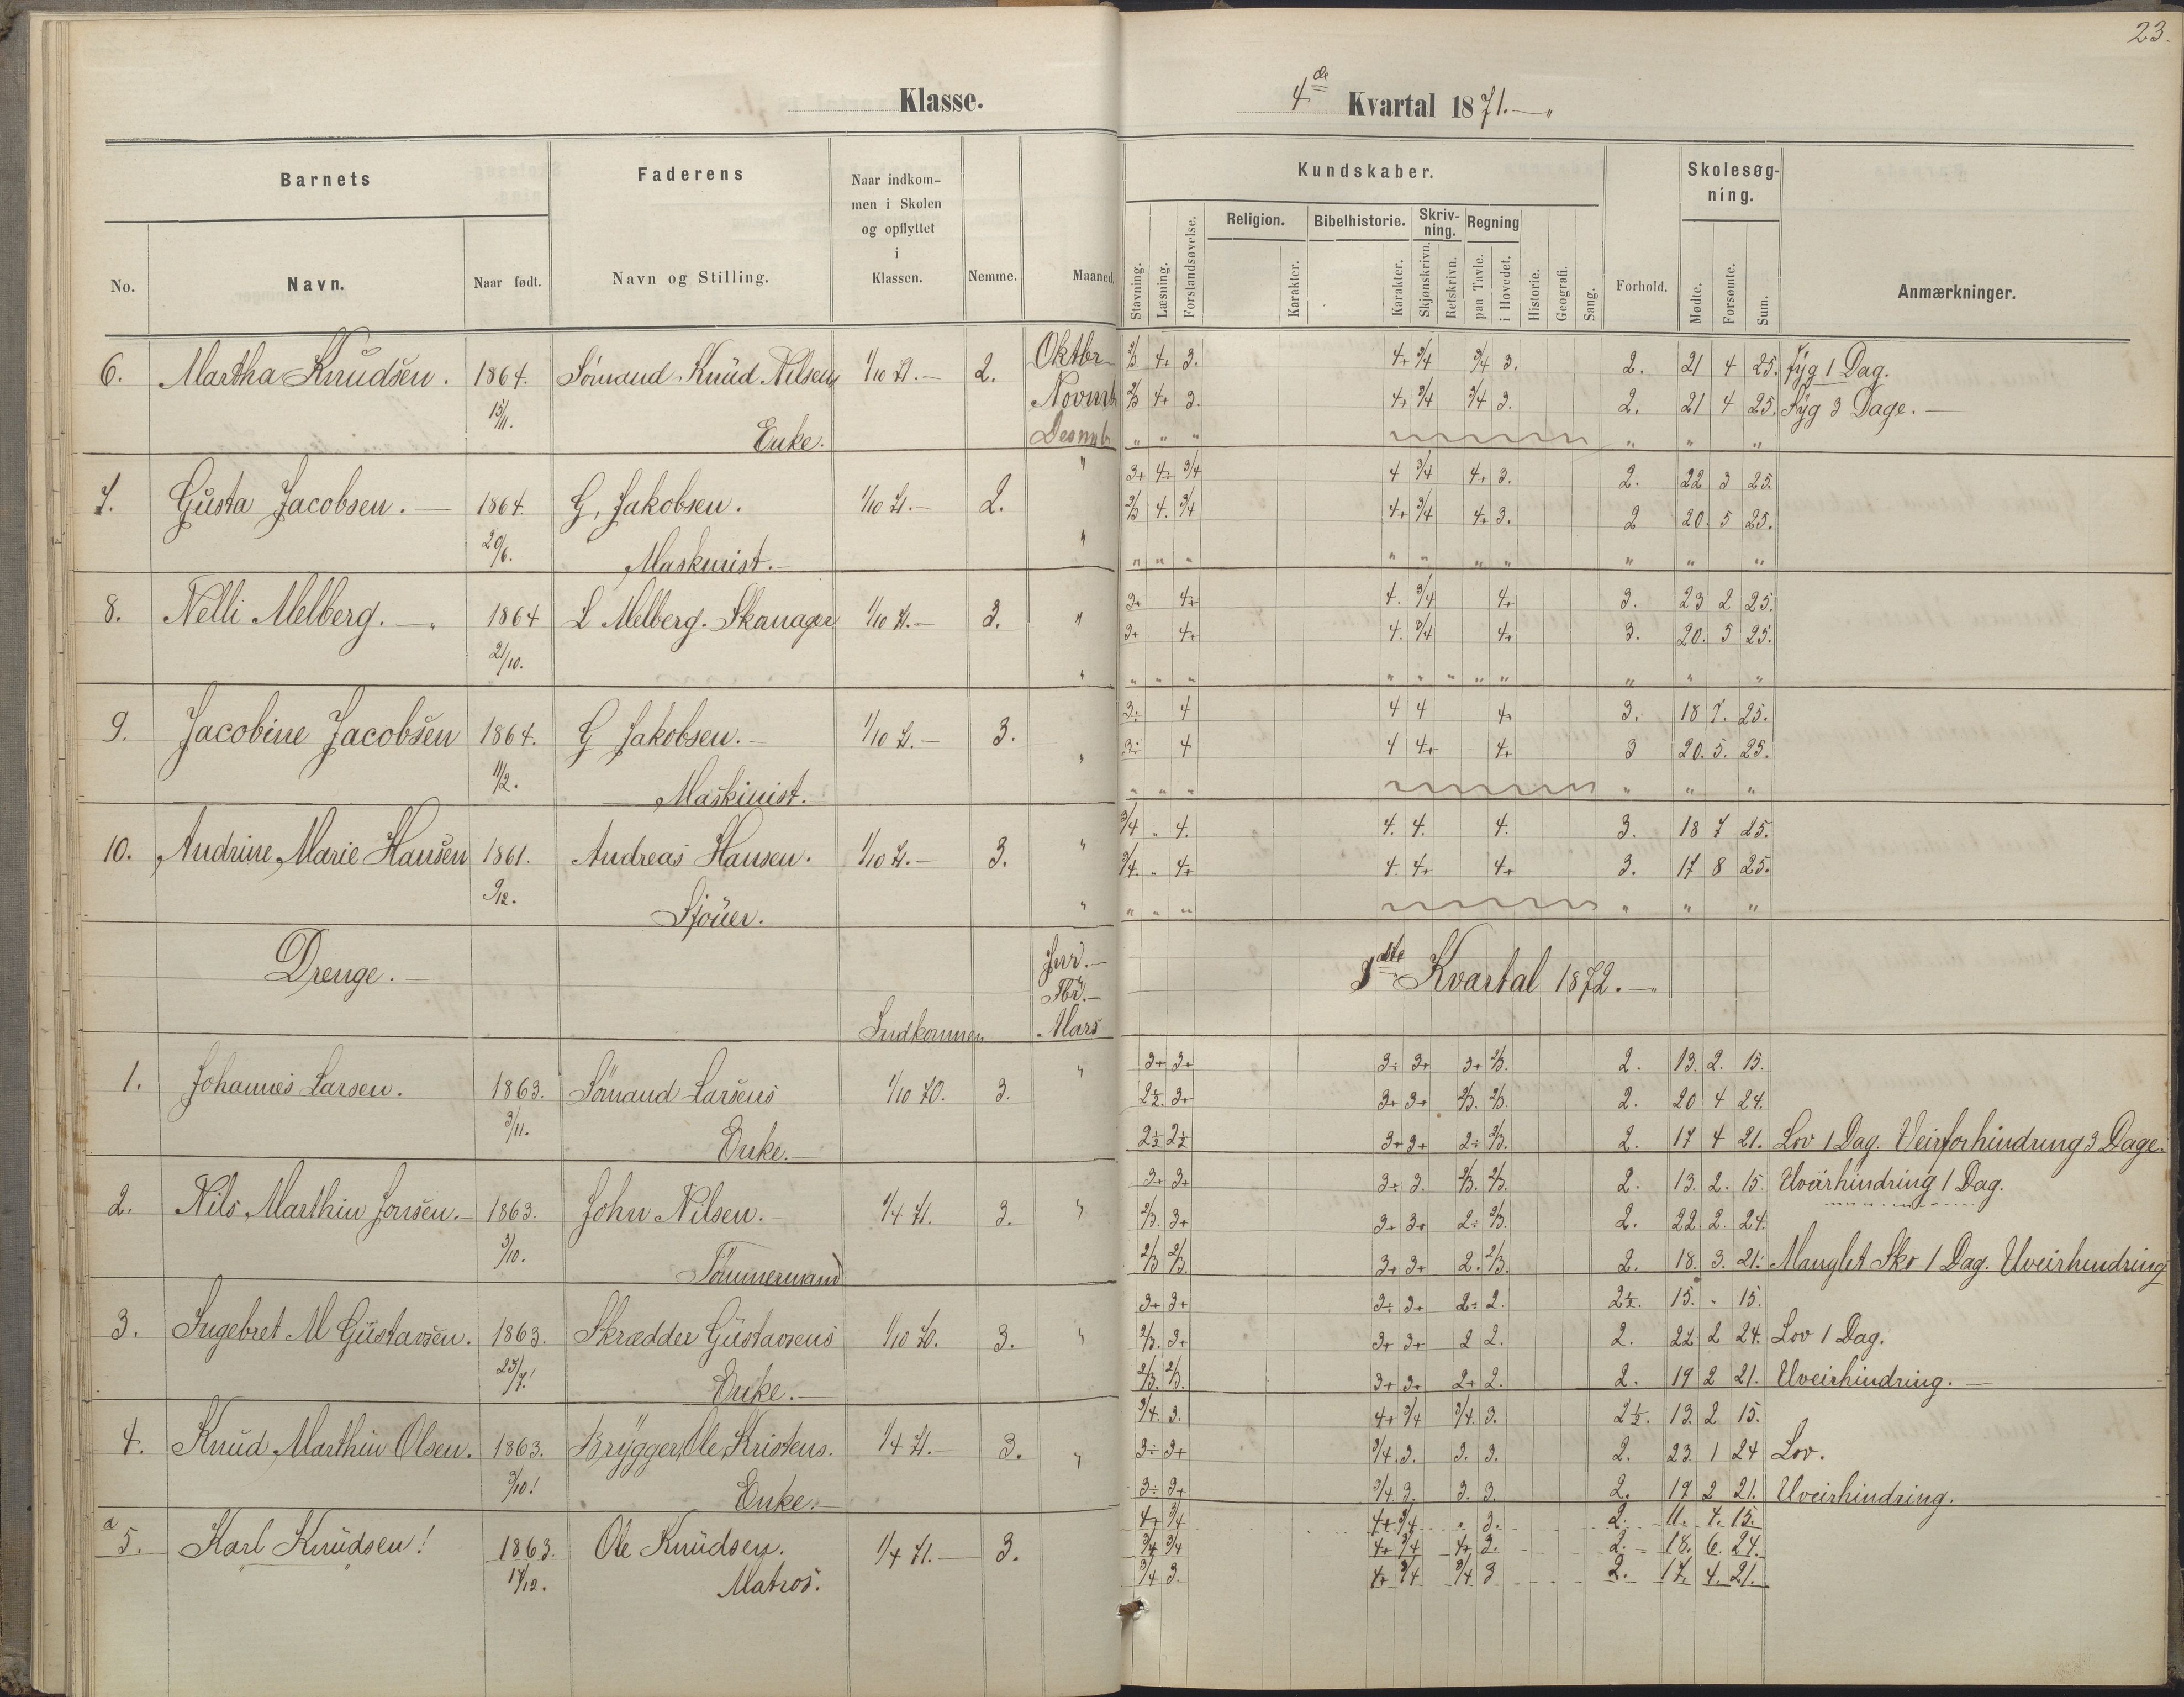 23.
Klasse.
4de Kvartal 1871.—„
Barnets
Faderens
Naar indkom-
men i Skolen
og opflyttet
i
Klassen.
No.
Navn.
Naar født.
Navn og Stilling.
Nemme.
Maaned.
Kundskaber.
Stavning.
Læsning.
Forstandsøvelse.
Religion.
Karakter.
Bibelhistorie.
Karakter.
Skriv-
ning.
Skjønskrivn.
Retskrivn.
Regning
paa Tavle.
i Hovedet.
Historie.
Geografi.
Sang.
Forhold.
Skolesøg-
ning.
Mødte.
Forsømte.
Sum.
Anmærkninger.
6. Martha Knudsen. 1864. Sömand Knud Nilsens 1/10 71.— 2. Oktbr 2/3 4+ 3. 4+ 3/4 3/4 3. 2. 21 4 25. Syg 1 Dag.
15/11. Novmb 2/3 4+ 3. 4+ 3/4 3/4 3. 2. 21 4 25. Syg 3 Dage.—
Enke. „ „ „ „ „ „
7. Gusta Jacobsen.— 1864. G. Jakobsen. 1/10 71.— 2. " 3+ 4÷ 3/4 4 3/4 4+ 3. 2. 22 3 25.
20/6. " 2/3 4. 3/4 4+ 3/4 4+ 3. 2 20. 5 25.
Maskinist.— „ „ „ „ „ „ „ „ „ „
8. Nelli Melberg.— 1864 L Melberg. Skomager 1/10 71.— 3. " 3+ 4+ 4. 3/4 4+ 3. 23 2 25.
21/10. 3+ 4+ 4. 3/4 4+ 3. 20. 5 25.
" „ „ „ „ „ „ „ „ „ „ „
9. Jacobine Jacobsen 1864. G Jakobsen.— 1/10 71.— 3. " 3÷ 4 4 4 4+ 3. 18 7. 25.
11/2. " 3÷ 4 4 4+ 4+ 3 20. 5. 25.
Maskinist.— „ „ „ „ „ „
10. Andrine Marie Hansen 1861. Andreas Hansen. 1/10 71.— 3. " 3/4 „ 4. 4. 4. 4. 3. 18 7 25.
9/12. 3/4. „ 4+ 4. 4+ 4+ 3. 17 8 25.
Sjouer. " „ „ „ „ „ „
Drenge.—
Jnr.—
Fbr.—
Indkommen Mars
1ste Kvartal 1872.—
1. Johannes Larsen. 1863. Sömand Larsens 1/10 70. 3. " 3+ 3+ 3÷ 3+ 3+ 2/3. 2. 13. 2. 15.
3/11. 2½. 3+ 3+ 3+ 2/3. 2/3. 2. 20 4 24.
Enke.— 2½ 2½ 3+ 3+ 2÷ 2/3. 2. 17 4 21. Lov 1 Dag. Veirforhindring 3 Dage.
2. Nils Marthin Jonsen.— 1863. John Nilsen.— 1/4 71. 3. " 3+ 3+ 3÷ 3. 2/3. 2/3. 2. 13. 2. 15. Uveirhindring 1 Dag.
3/10. 2/3. 3+ 3+ 3+ 2÷ 2/3. 2. 22. 2. 24.
Tömmermand 2/3 2/3. 3+ 3+ 2. 2/3. 2. 18. 3. 21. Manglet Sko 1 Dag. Uveirhindring
3. Ingebret M Gustavsen. 1863. Skrædder Gustavsens 1/10 70. 3. " 3+ 3+ 3÷ 3+ 2÷ 2. 2½. 15. „ 15.
25/7. 2/3. 3+ 3+ 3+ 2 2. 2. 22 2 24. Lov 1 Dag.
Enke.— 2/3. 2/3. 3+ 3+ 2+ 2. 2. 19 2 21. Uveirhindring.—
4. Knud Marthin Olsen. 1863. Brygger Ole Kristens. 1/4 71. 3. " 3/4. 3. 4+ 3/4 3/4. 3. 2½. 13. 2 15.
3/10! 3÷ 3+ 3/4. 3. 3. 3. 2. 23 1 24 Lov.
Enke.— 3÷ 3+ 3/4. 3. 3. 3. 2. 19 2 21. Uveirhindring.
a 5. Karl Knudsen! 1863. Ole Knudsen. 1/4 71.— 3. 4+ 3/4 4+ 3/4 „ 3. 2. 11. 4. 15.
17/12. Matros. 3/4 3/4 4+ 3/4 4+ 3. 2. 18. 6. 24.
3/4 3. 4+ 3/4 3/4 3 2. 17. 4. 21.